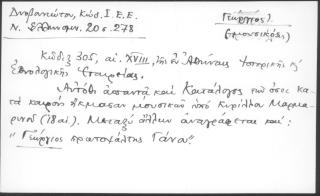 Δυοβουνιώτου, Κώδ. Ι.Ε.Ε.
Ν. Ἑλληνομν. 20 σ. 278
Γεώργιος).
(μουσικός)
Κώδιξ 305, αἰ. XVIII, τῆς ἐν Ἀθήναις Ἱστορικῆς κ
Ἐθνολογικῆς Ἑταιρείας.
Αὐτόθι ἀπαντᾷ καὶ Κατάλογος τῶν ὅσοι κα-
τὰ καιρὸν ἤκμασαν μουσικῶν ὑπὸ Κυρίλλου Μαρμα-
ρινοῦ (18 αἰ). Μεταξὺ ἄλλων ἀναγράφεται καί:
"Γεώργιος πρωτοψάλτης Γάνου".